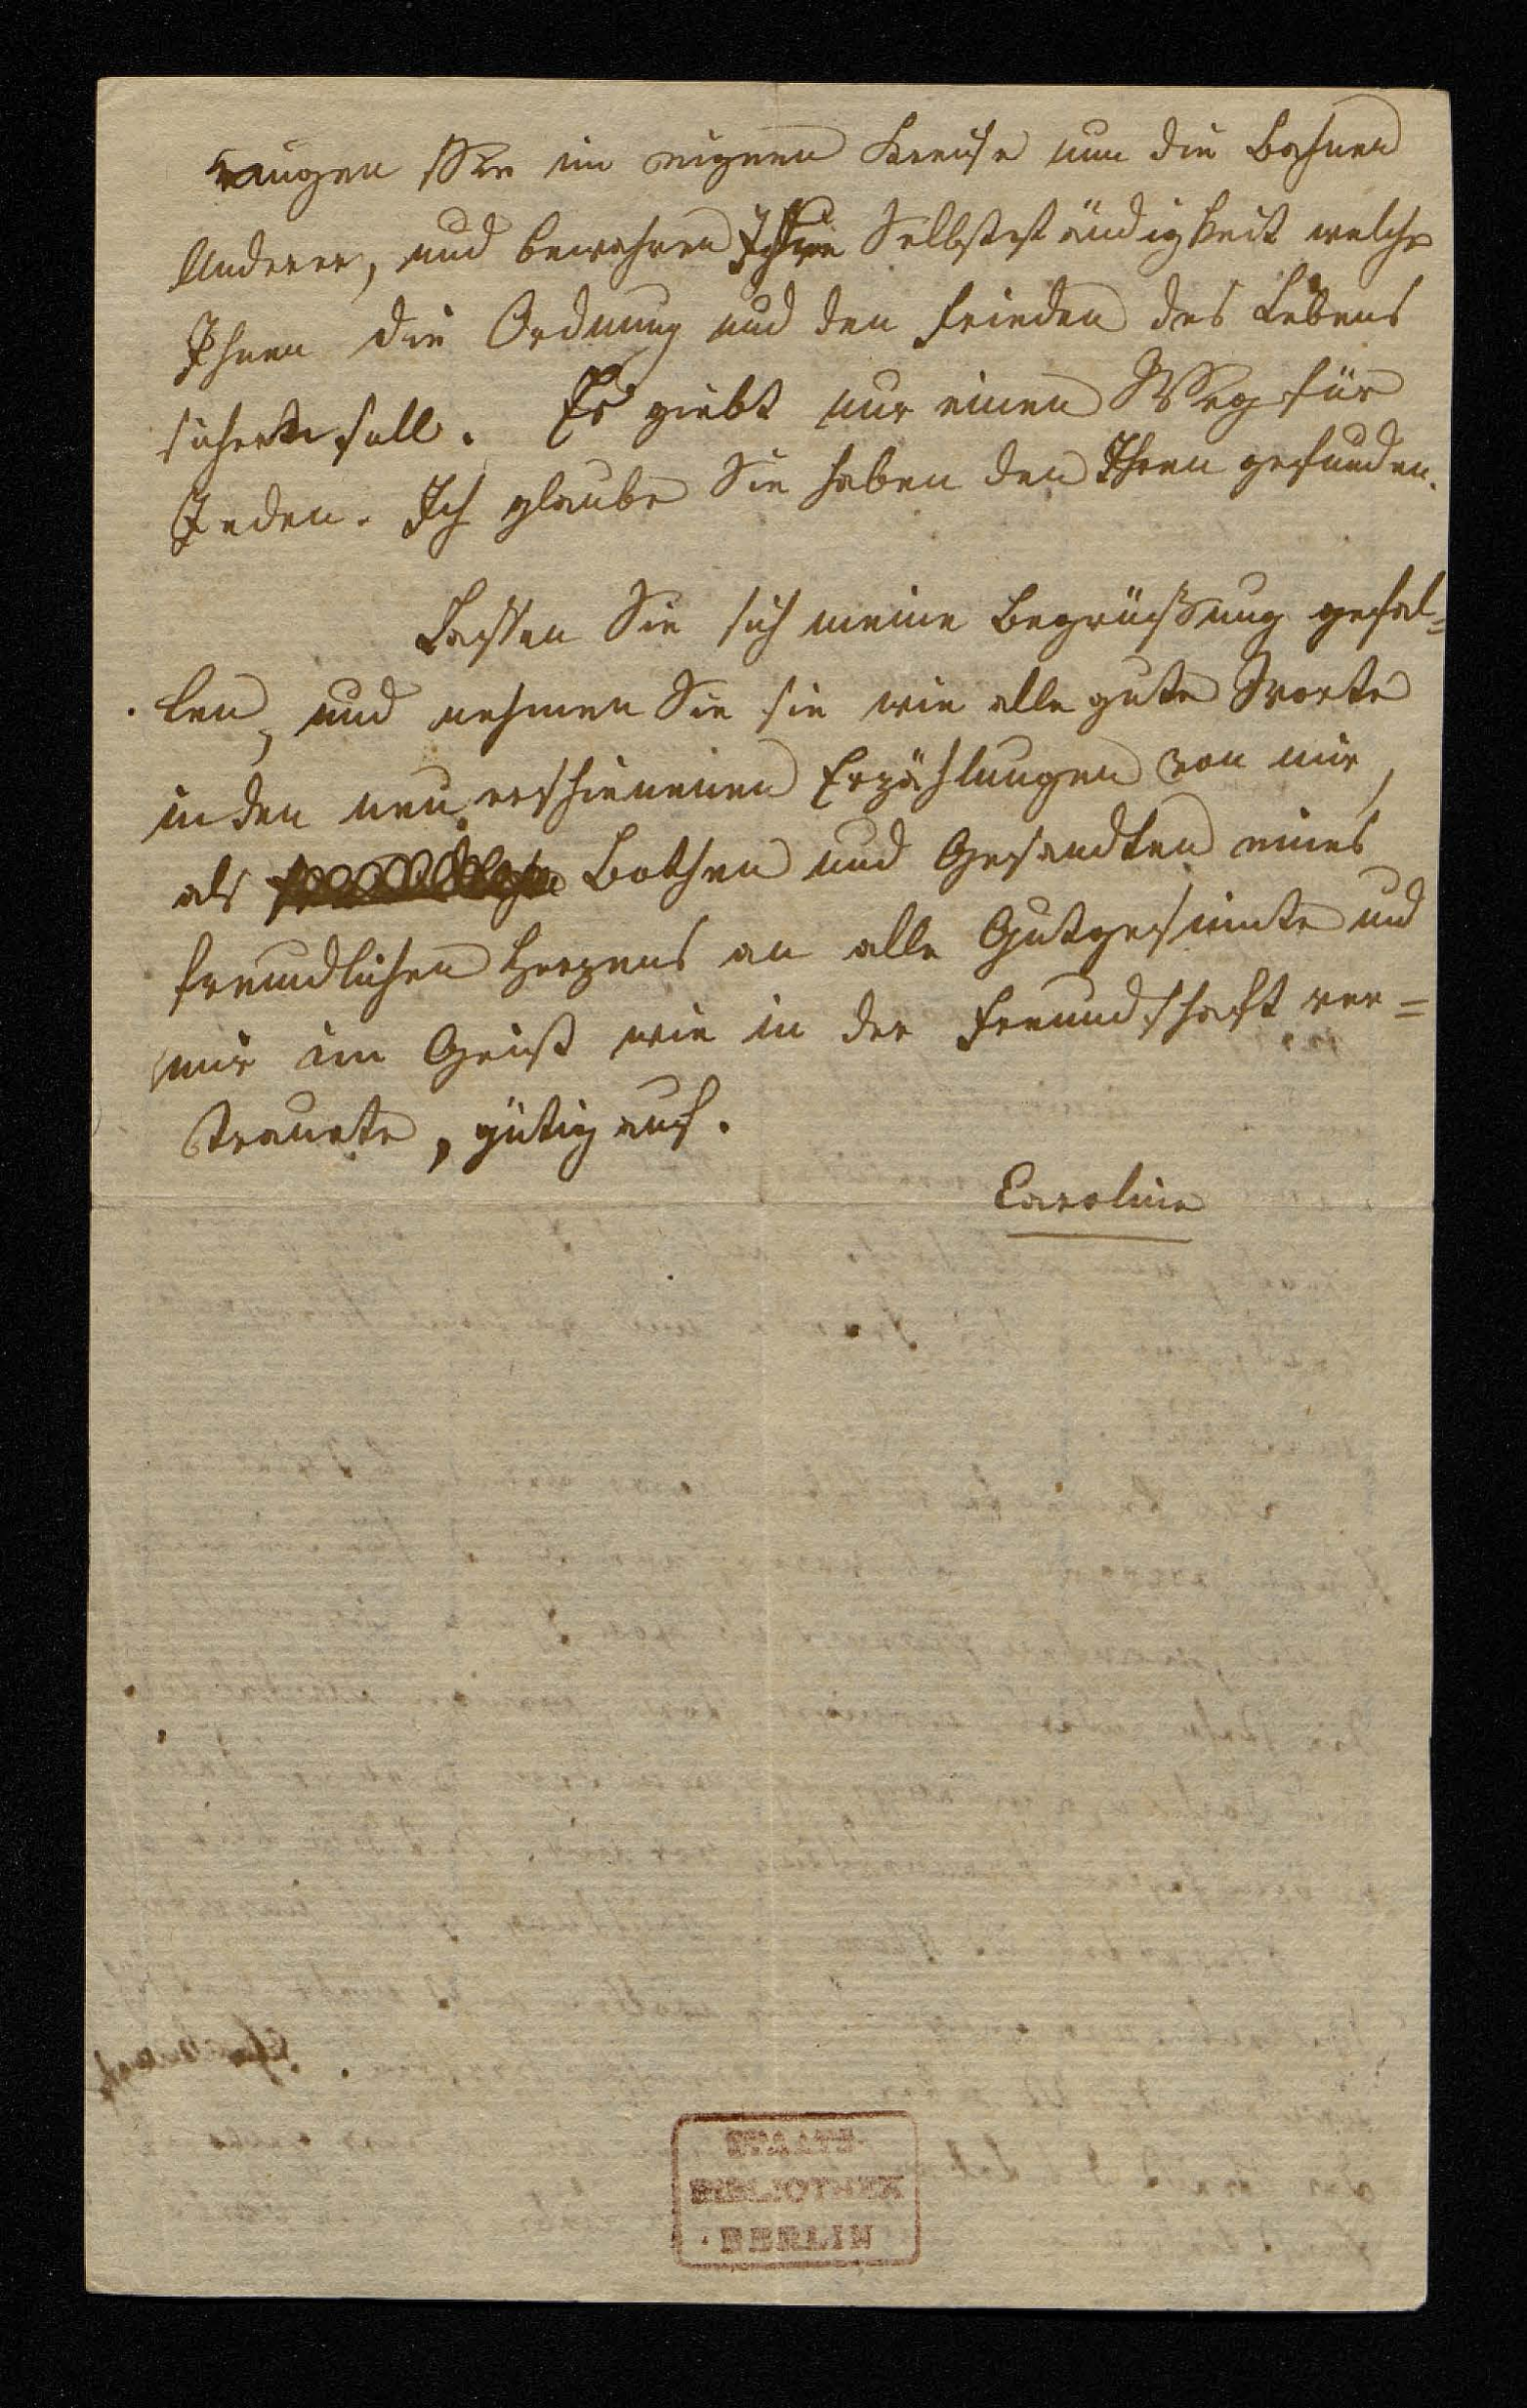 Sie im eignen Kreise nun die Bahnen
Anderer, und bewahren Ihre Selbstständigkeit welche
Ihnen die Ordnung und den Frieden des Lebens
sichern soll. Es giebt nur einen Weg für
Jeden. Ich glaube Sie haben den Ihren gefunden.
Lassen Sie sich meine Begrüßung gefal=
len, und nehmen Sie sie wie alle gute Worte
in den neu erschienenen Erzählungen von mir,
als Bothen und Gesandten eines
freundlichen Herzens an alle Gutgesinnte und
mir im Geist wie in der Freundschaft ver=
traute, gütig auf.
Caroline
STAATS-
BIBLIOTHEK
BERLIN